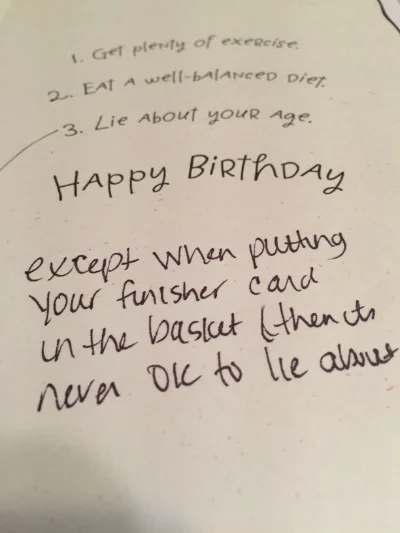 1. Get plenty of exercise.
2. Eat a well-balanced diet.
3. Lie about your age.
HAPPY BIRTHDAY
except when putting
your finisher card
in the basket (then its
never OK to lie about